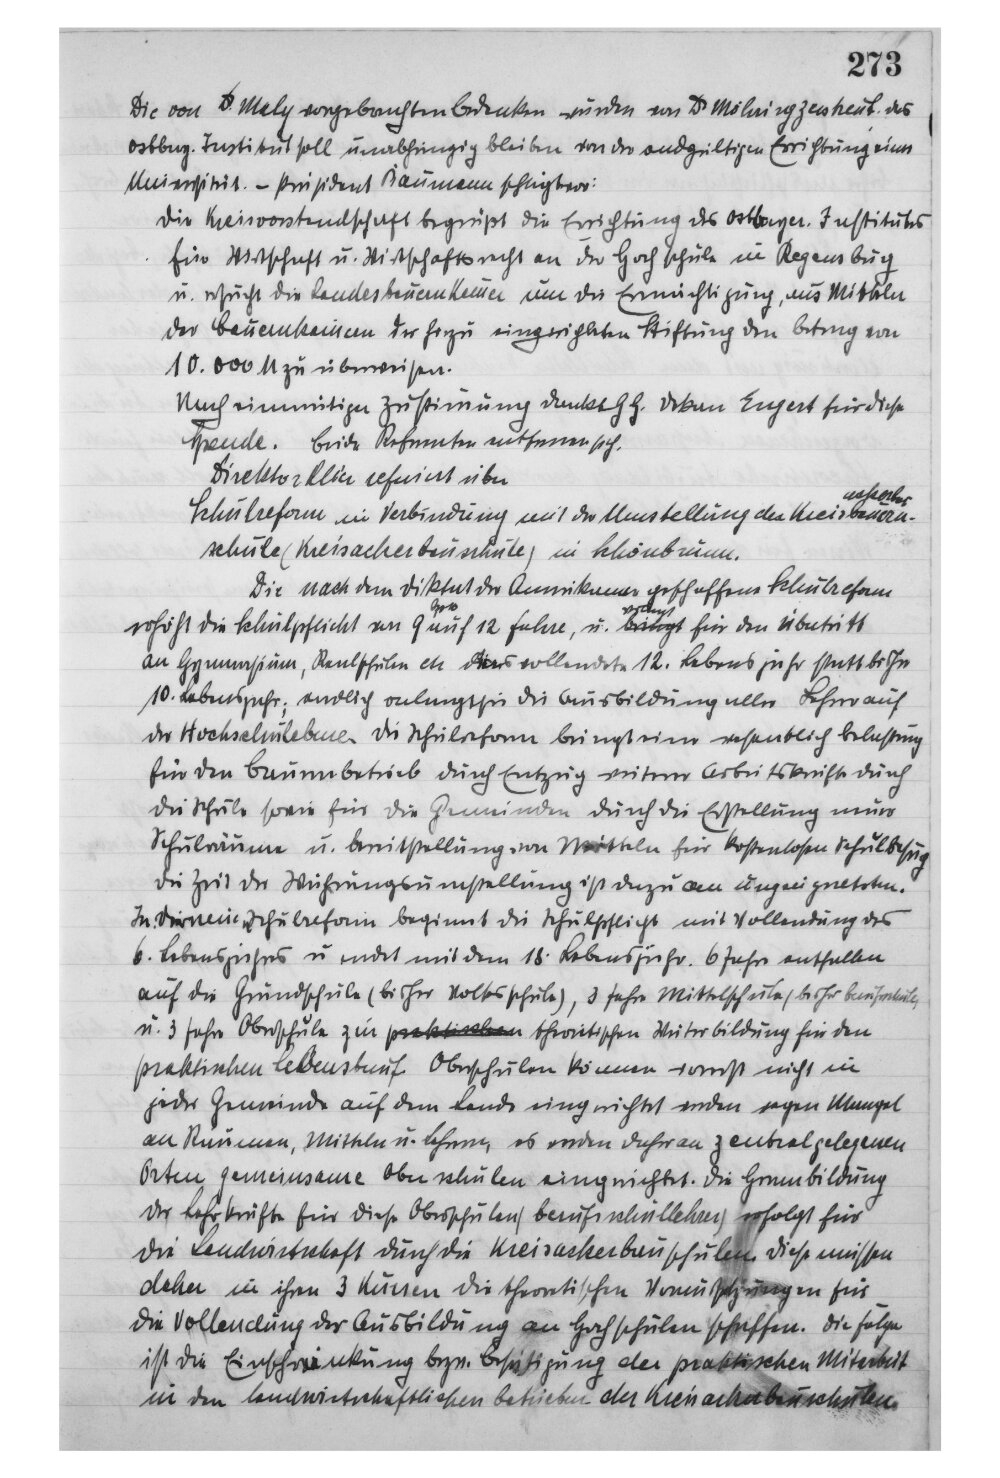 273
Die von Dr. Maly vorgebrachten Bedenken wurden von Dr. zerstreut. das
ostbay. Institut soll unabhängig bleiben von der endgültigen Errichtung einer
Universität. – Präsident Baumann schlägt vor:
die Kreisvorstandschaft begrüßt die Errichtung des Ostbayer. Institutes
für Wirtschaft u. Wirtschaftsrecht an der Hochschule in Regensburg
u. ersucht die Landesbauernkammer um die Ermächtigung, aus Mitteln
der Bauernkammern der hiezu eingerichteten Stiftung den Betrag von
10.000 M zu überweisen.
Nach einmütiger Zustimmung dankt HH. Dekan Engert für diese
Spende. Beide Referenten entfernen sich.
Direktor referiert über
Schulreform in Verbindung mit der Umstellung der Kreisbauern-
schule (Kreisackerbauschule) in Schönbrunn.
Die nach dem Diktat der Amerikaner geschaffene Schulreform
erhöht die Schulpflicht von 9 auf 12 Jahre, u. für den Übertritt
an Gymnasium, Realschulen etc das vollendete 12. Lebensjahr statt bisher
10. Lebensjahr; endlich verlangt sie die Ausbildung aller Lehrer auf
der Hochschulebene. Die Schulreform bringt eine wesentlich Belastung
für den Bauernbetrieb durch Entzug weiterer Arbeitskräfte durch
die Schule sowie für die Gemeinden durch die Erstellung neuer
Schulräume u. Bereitstellung von Mitteln für kostenlosen Schulbesuch
die Zeit der Währungsumstellung ist dazu am ungeeignetsten.
In der neuen Schulreform beginnt die Schulpflicht mit Vollendung des
6. Lebensjahres u endet mit dem 18. Lebensjahr. 6 Jahre entfallen
auf die Grundschule (bisher Volksschule), 3 Jahre Mittelschule (bisher Berufsschule)
u. 3 Jahre Oberschule zur praktischen theoretischen Weiterbildung für den
praktischen Lebensberuf. Oberschulen können vorerst nicht in
jeder Gemeinde auf dem Lande eingerichtet werden wegen Mangel
an Räumen, Mitteln u. Lehrern, es werden daher an zentral gelegenen
Orten gemeinsame Oberschulen eingerichtet. die Heranbildung
der Lehrkräfte für diese Oberschulen (Berufsschullehrer) erfolgt für
die Landwirtschaft durch die Kreisackerbauschulen. diese müssen
daher in ihren 3 Kursen die theoretischen Voraussetzungen für
die Vollendung der Ausbildung an Hochschulen schaffen. die Folge
ist die Einschränkung bezw. Beseitigung der praktischen Mitarbeit
in den landwirtschaftlichen Betrieben der Kreisackerbauschulen.